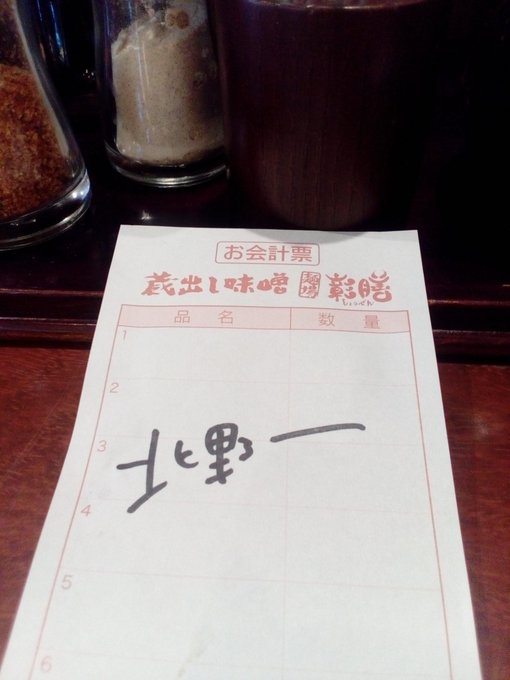 お会計票
蔵出し味噌 麺場 彰膳
しょうぜん
品名 数量
1
2
北野 一
3
4
5
6